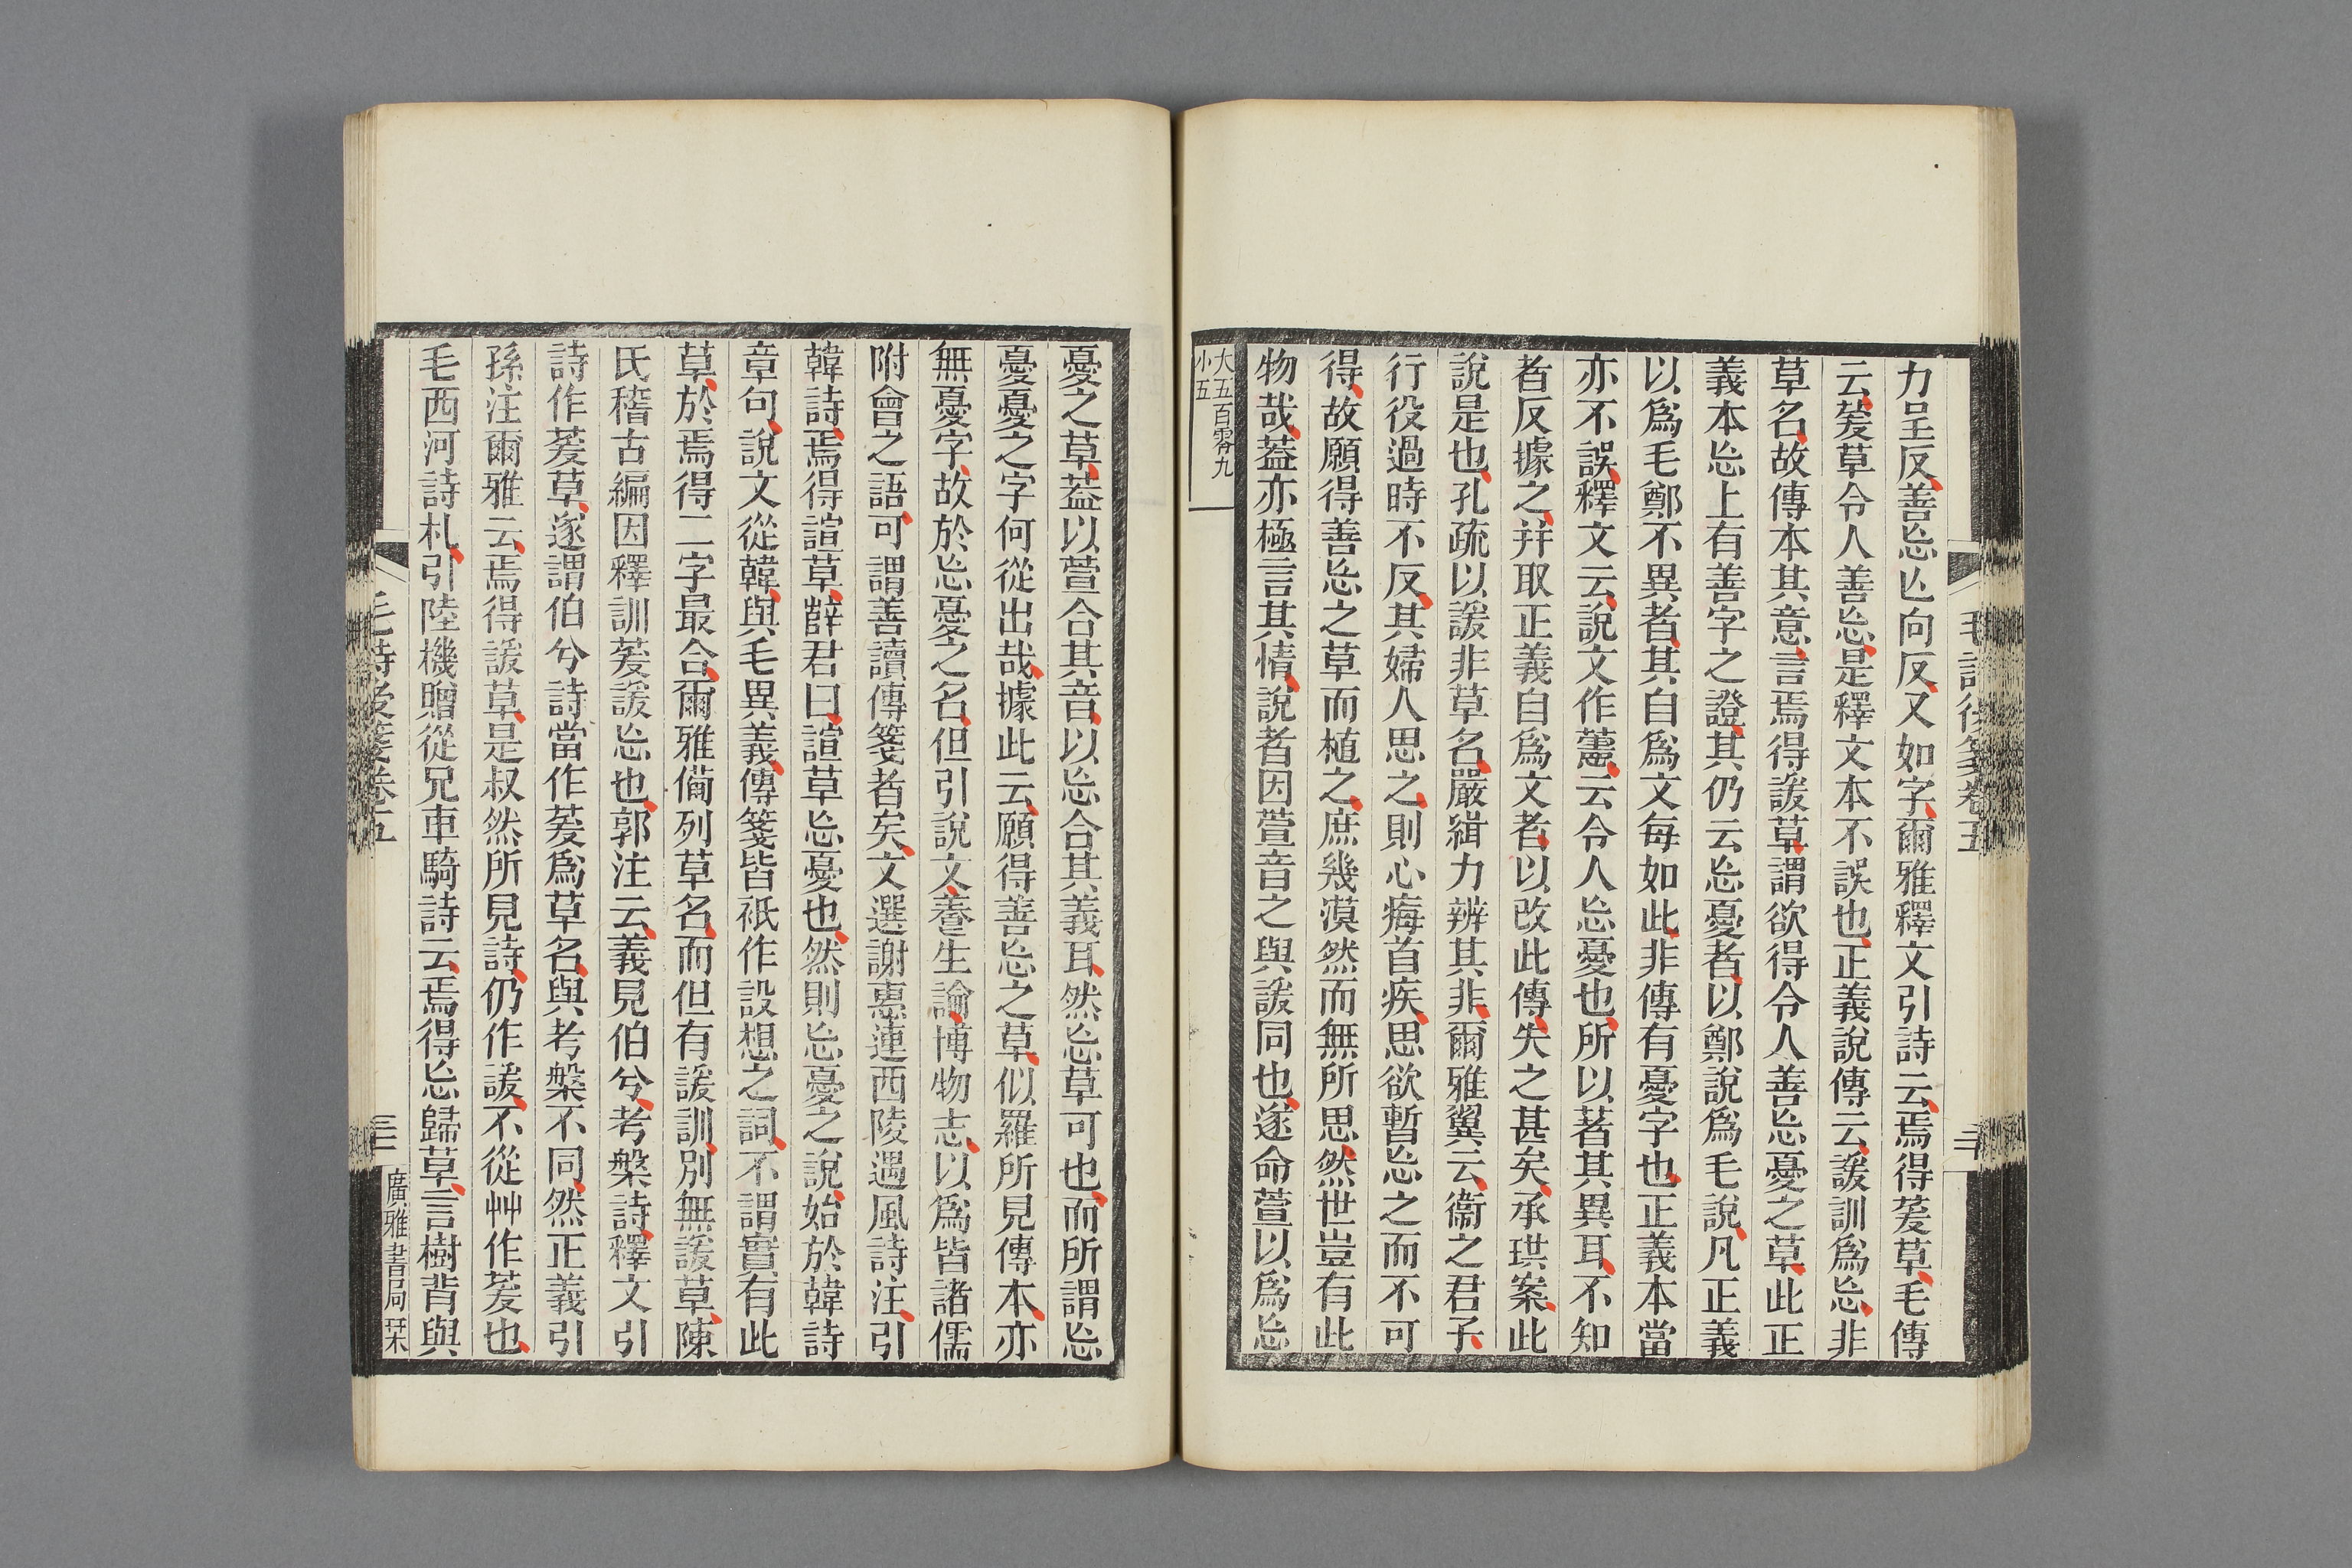 毛詩後箋卷五
三十
力呈反善忘亡向反又如字爾雅釋文引詩云焉得萲草毛傳
云萲草令人善忘是釋文本不誤也正義說傳云諼訓爲忘非
草名故傳本其意言焉得諼草謂欲得令人善忘憂之草此正
義本忘上有善字之證其仍云忘憂者以鄭說爲毛說凡正義
以爲毛鄭不異者其自爲文每如此非傳有憂字也正義本當
亦不誤釋文云說文作藼云令人忘憂也所以著其異耳不知
者反據之并取正義自爲文者以改此傳失之甚矣承珙案此
說是也孔疏以諼非草名嚴緝力辨其非爾雅翼云衞之君子
行役過時不反其婦人思之則心痗首疾思欲暫忘之而不可
得故願得善忘之草而植之庶幾漠然而無所思然世豈有此
物哉葢亦極言其情說者因萱音之與諼同也遂命萱以爲忘
大五百零九
小五
憂之草葢以萱合其音以忘合其義耳然忘草可也而所謂忘
憂憂之字何從出哉據此云願得善忘之草似羅所見傳本亦
無憂字故於忘憂之名但引說文養生論博物志以爲皆諸儒
附會之語可謂善讀傳箋者矣文選謝惠連西陵遇風詩注引
韓詩焉得諠草薛君曰諠草忘憂也然則忘憂之說始於韓詩
章句說文從韓與毛異義傳箋皆祇作設想之詞不謂實有此
草於焉得二字最合爾雅備列草名而但有諼訓別無諼草陳
氏稽古編因釋訓萲諼忘也郭注云義見伯兮考槃詩釋文引
詩作萲草遂謂伯兮詩當作萲爲草名與考槃不同然正義引
孫注爾雅云焉得諼草是叔然所見詩仍作諼不從艸作萲也
毛西河詩札引陸機贈從兄車騎詩云焉得忘歸草言樹背與
毛詩後箋卷五
三十
廣雅書局栞